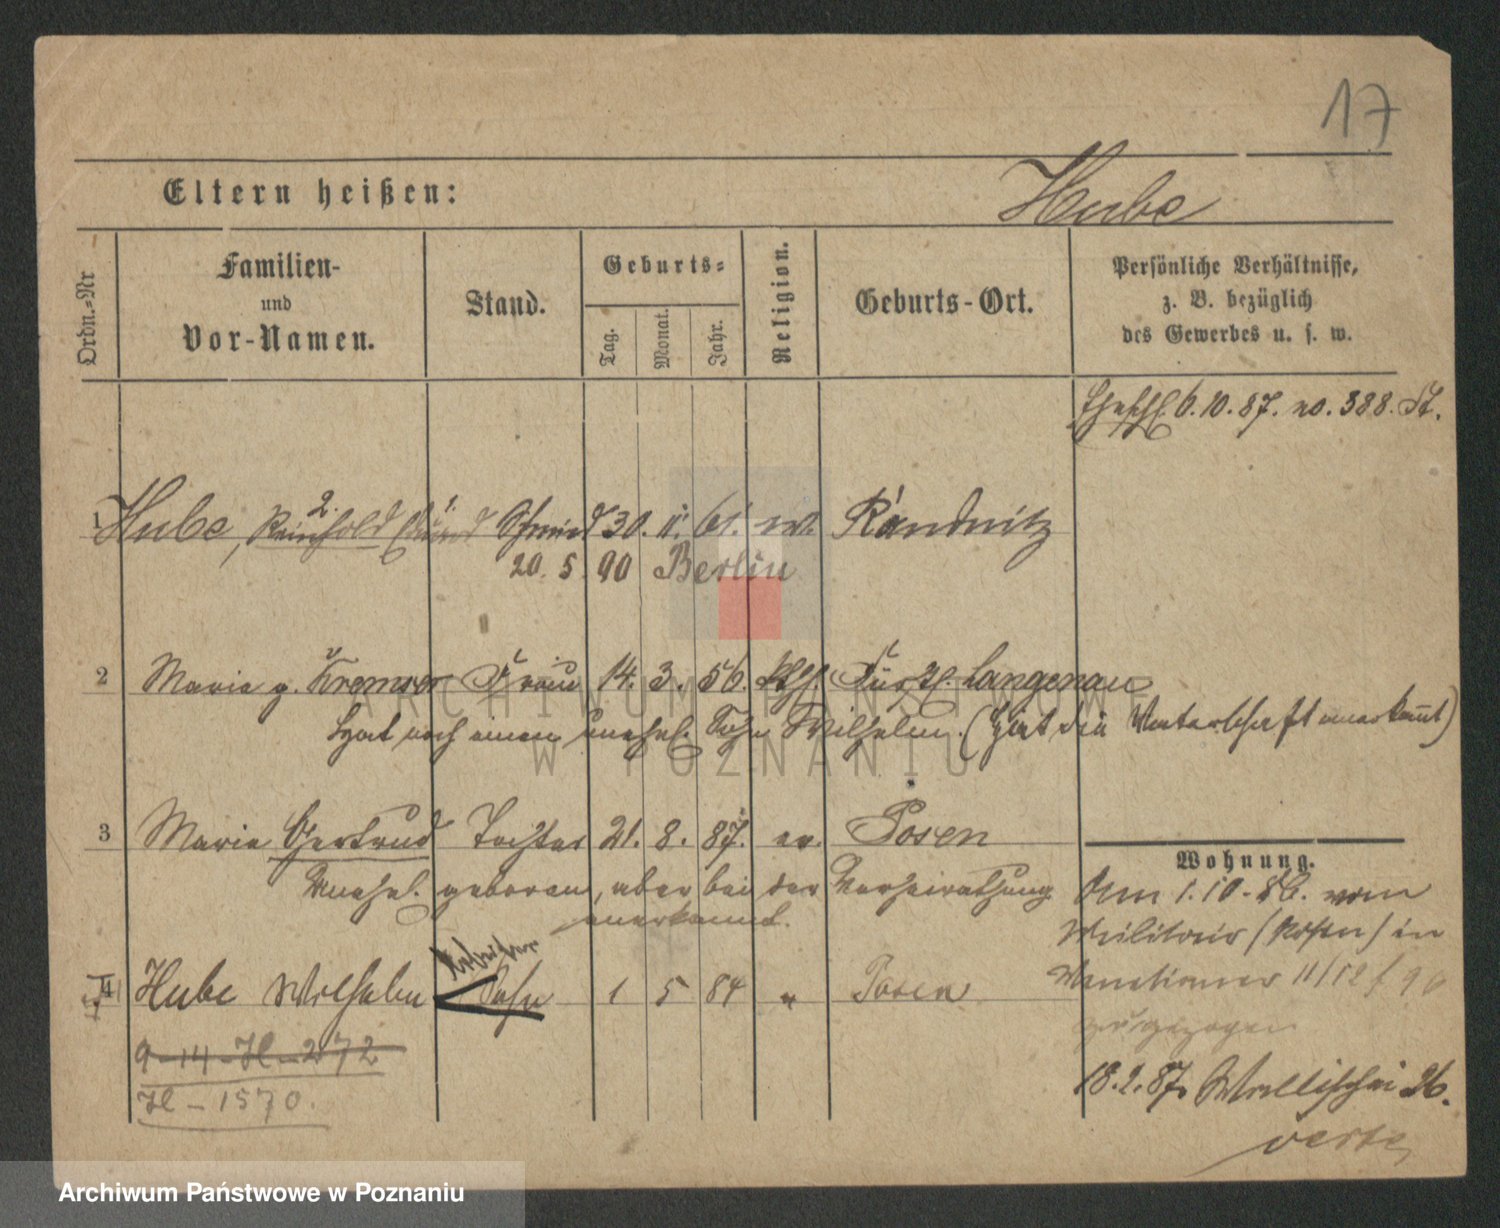 17
Eltern heißen: Hube
Ordn.-Nr
Familien-
und
Vor-Namen.
Stand.
Geburts-
Tag.
Monat.
Jahr.
Religion.
Geburts-Ort.
Persönliche Verhältnisse,
z. B. bezüglich
des Gewerbes u. s. w.
6.10.87. no. 388. St.
2. 1.
1 Hube, Reinhold Eduard Schmied 30. 11. 61. ev. Randnitz
20. 5. 90 Berlin
2 Maria g. Kremser Frau 14. 3. 56. kth. Fürstl. Langenau
Hat noch einen unehel. Sohn Wilhelm. (Hat die Vaterschaft anerkannt)
3 Maria Gertrud Tochter 21. 8. 87. ev. Posen
Unehel. geboren, aber bei der Verheirathung
anerkannt.
Arbeiter
4 Hube Wilhelm Sohn 1 5 84 " Posen
9-14-H-272
H-1570.
Wohnung.
Am 1.10.86. vom
Militair (Posen) in
zugezogen
18.2.87. Wallischei 26.
verte
ARCHIWUM PAŃSTWOWE
W POZNANIU
Archiwum Państwowe w Poznaniu